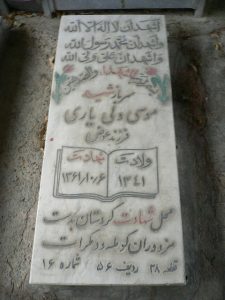 اشهد ان لا اله الا الله
واشهد ان محمد رسول الله
واشهد ان علی ولی الله
سرباز شهید
موسی ولی یاری
فرزند عوض
ولادت شهادت
۱۳۴۱ ۱۳۶۱/۱۰/۶
محل شهادت کردستان بدست
مزدوران کومله و دمکرات
قطعه ۲۸ ردیف ۵۶ شماره ۱۶